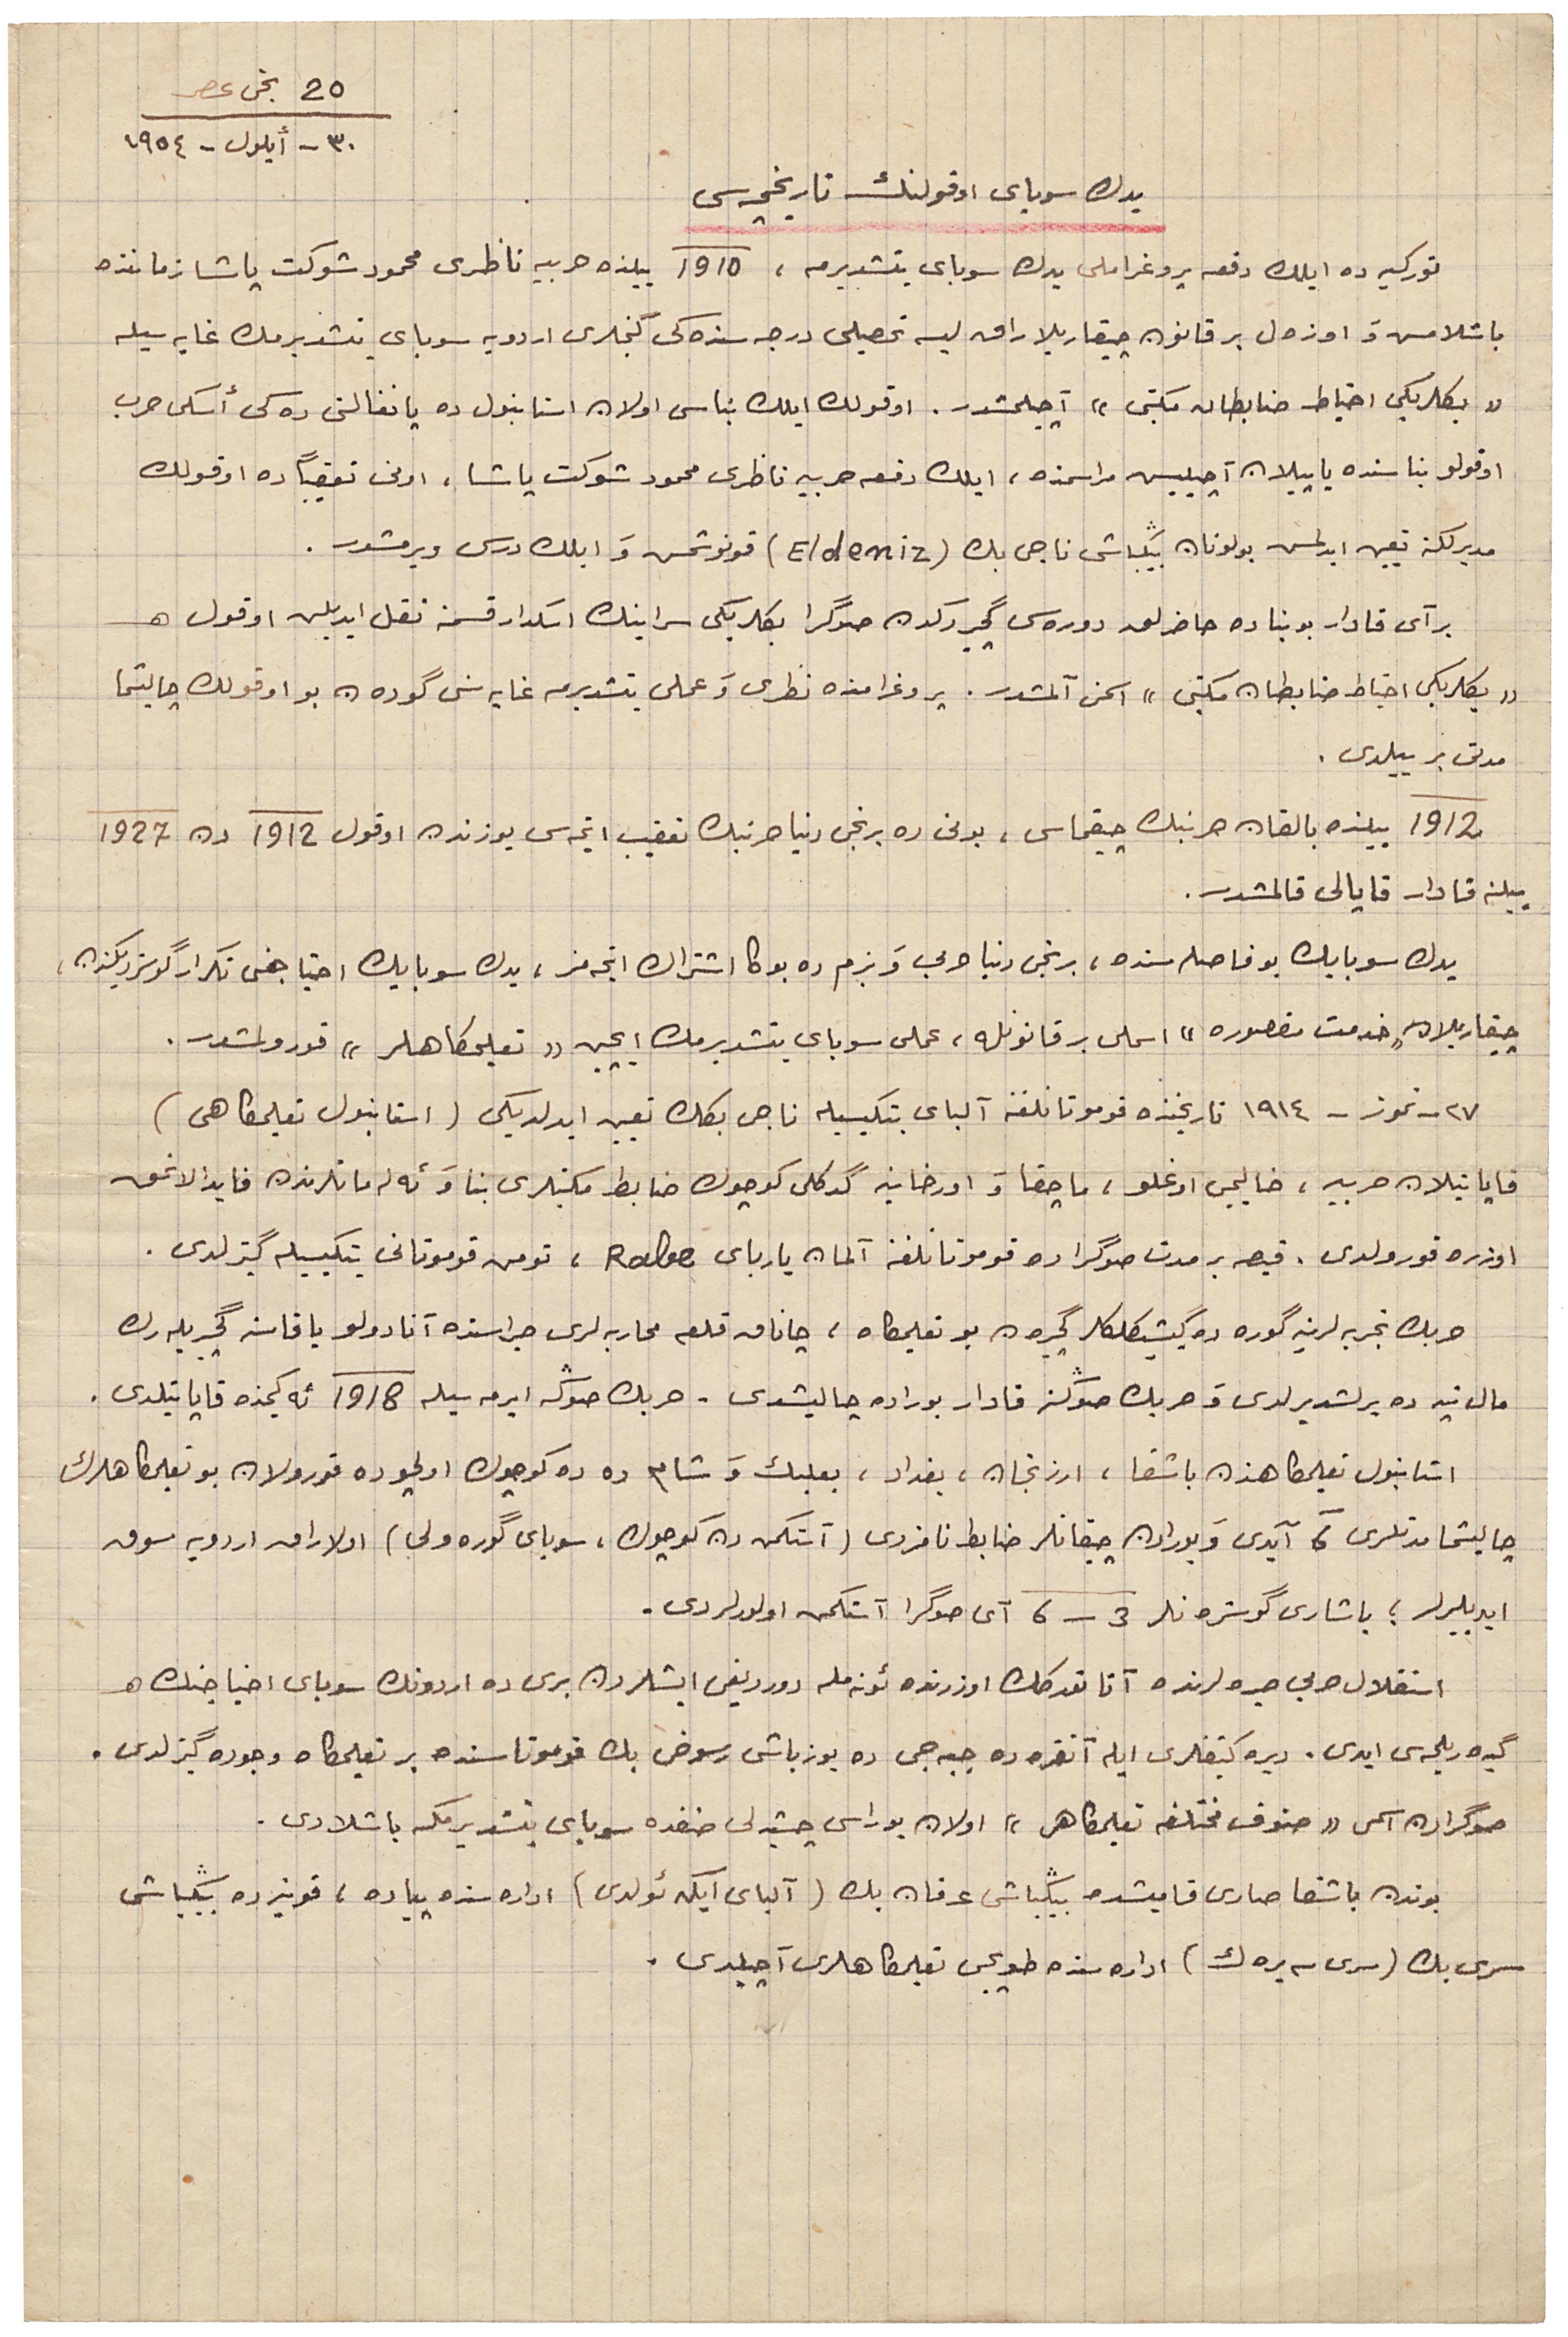 20 نجی عصر
٣٠ - أیلول - ١٩٥٤
یدك سوبای اوقولنك تاریخچه‌سی
توركیه ده ایلك دفعه پروغراملی یدك سوبای یتشدیرمه ، 1910 ییلنده حربیه ناظری محمود شوكت پاشا زماننده
باشلامس وَ اوزه‌ل بر قانون چیقاریلاراق لیسه تحصیلی درجه سنده‌كی گنجلری اردویه سوبای یتشدیرمك غایه سیله
« بكلربكی احتیاط ضابطان مكتبی » آچیلمشدر . اوقولك ایلك بناسی اولان استانبول ده پانغالتی ده كی أسكی حرب
اوقولو بناسنده یاپیلان آچیلیس مراسمنده ، ایلك دفعه حربیه ناظری محمود شوكت پاشا ، اونی تعقیباً ده اوقولك
مدیرلكنه تعیین ایدلمس بولونان بیڭباشی ناجی بك (Eldeniz) قونوشمس وَ ایلك درسی ویرمشدر .
بر آی قادار بو بناده حاضرلق دوره‌سی گچیردكدن صوڭرا بكلربكی سراینك اسكدار قسمنه نقل ایدیلن اوقول
« بكلربكی احتیاط ضابطان مكتبی » اسمنی آلمشدر . پروغرامنده نظری وَ عملی یتشدیرمه غایه سنی گوده‌ن بو اوقولك چالیشما
مدتی بر ییلدی .
1912 ییلنده بالقان حربنك چیقماسی ، بونی ده برنجی دنیا حربنك تعقیب ایتمه‌سی یوزندن اوقول 1912 دن 1927
ییلنه قادار قاپالی قالمشدر .
یدك سوبایلك بو فاصله سنده ، برنجی دنیا حربی وَ بزم ده بوڭا اشتراك ایتمه‌مز ، یدك سوبایلك احتیاجنی تكرار گوستردیكندن ،
چیقاریلان « خدمت مقصوره » اسملی بر قانونله ، عملی سوبای یتشدیرمك ایچین « تعلیمگاهلر » قورولمشدر .
٢٧ - تموز - ١٩١٤ تاریخنده قوموتانلغنه آلبای یتكیسیله ناجی بكك تعیین ایدلدیكی ( استانبول تعلیمگاهی )
قاپاتیلان حربیه ، خالیجی اوغلو ، ماچقا وَ اورخانیه گدكلی كوچوك ضابط مكتبلری بنا وَ ئه‌له‌مانلرندن فایدالانمق
اوزره قورولدی . قیصه بر مدت صوڭرا ده قوموتانلغنه آلمان یاربای Rabe ، تومن قوموتانی یتكیسیله گتیرلدی .
حربك تجربه لرینه گوره ده‌گیشیكلكلر گچیره‌ن بو تعلیمگاه ، چاناق قلعه محاربه لری صیراسنده آنادولو یاقاسنه گچیریله‌رك
مال تپه ده یرلشدیرلدی وَ حربك صوڭنه قادار بوراده چالیشدی . حربك صوڭه ایرمه سیله 1918 ئه‌كیمنده قاپاتیلدی .
استانبول تعلیمگاهندن باشقا ، ارزنجان ، بغداد ، بعلبك وَ شام ده ده كوچوك اولچوده قورولان بو تعلیمگاهلرك
چالیشما مدتلری 6 آیدی وَ بورادن چیقانلر ضابط نامزدی ( آستكمن دن كوچوك ، سوبای گوره‌ولی ) اولاراق اردویه سوق
ایدیلیرلر ؛ باشاری گوستره‌نلر 3 - 6 آی صوڭرا آستكمن اولورلردی .
استقلال حربی صیره لرنده آتاتوركك اوزرنده ئونه‌مله دوردیغی ایشلردن بری ده اردونك سوبای احتیاجنك
گیده‌ریلمه‌سی ایدی . دیره كتیفلری ایله آنقره ده جبه‌جی ده یوزباشی رسوخی بك قوموتاسنده بر تعلیمگاه وجوده گتیرلدی .
صوڭرادن اسمی « صنوف مختلفه تعلیمگاهی » اولان بوراسی چشیدلی صنفده سوبای یتشدیرمكه باشلادی .
بوندن باشقا صاری قامیشده بیڭباشی عرفان بك ( آلبای ایكن ئولدی ) اداره سنده پیاده ، قونیه ده بیڭباشی
سری بك ( سری سه‌یره‌ك ) اداره سنده طوپچی تعلیمگاهلری آچیلدی .